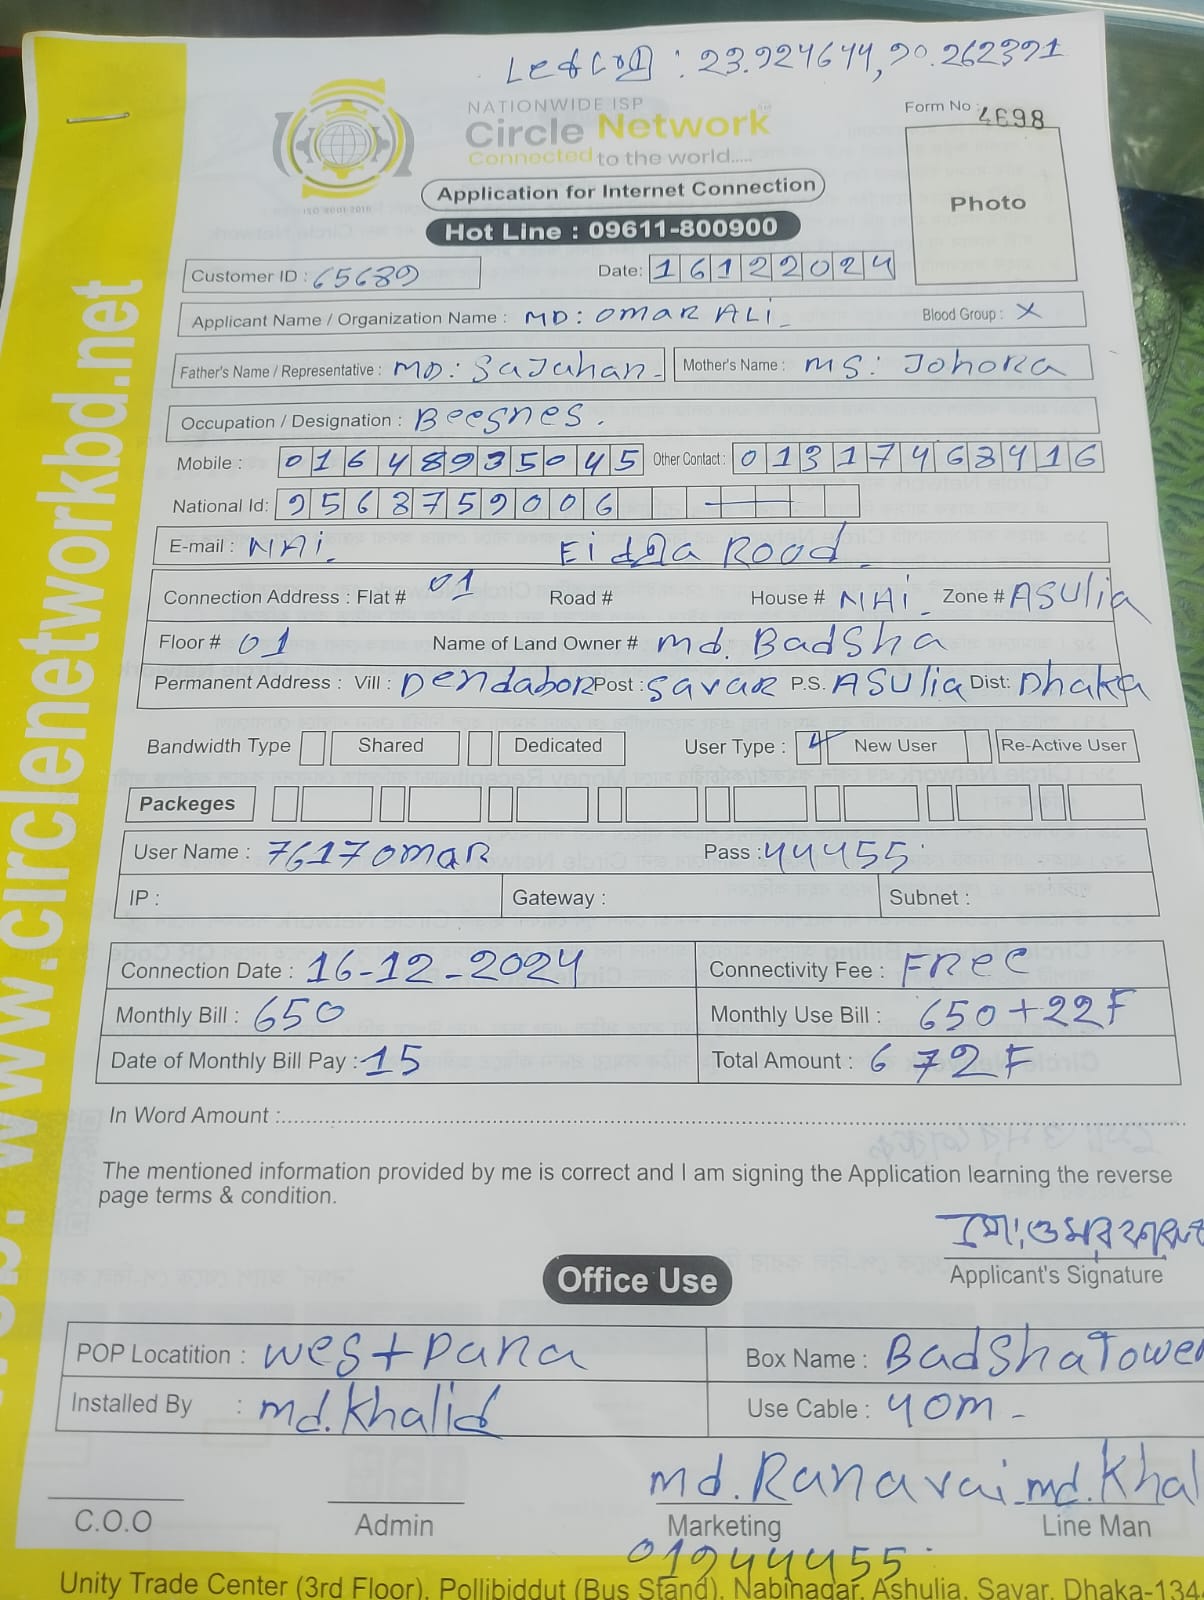 : 23.924644, 90.262391
NATIONWIDE ISP
Circle Network
Connected to the world.....
Form No : 4698
Application for Internet Connection
Photo
Hot Line : 09611-800900
Customer ID : 65689 Date: 16122024
Applicant Name / Organization Name : MD: OMAR ALi Blood Group : X
Father's Name / Representative : MD: SaJahan Mother's Name : MS: Johora
Occupation / Designation : Beesnes.
Mobile : 01648935045 Other Contact : 01317468416
National Id: 9568759006
E-mail : NAi Road
Connection Address : Flat # 01 Road # House # NAi Zone # ASulia
Floor # 01 Name of Land Owner # md. BadSha
Permanent Address : Vill : Dendabor Post : Savar P.S. ASulia Dist: Dhaka
Bandwidth Type Shared Dedicated User Type : New User Re-Active User
Packeges
User Name : 7617omar Pass : 44455
IP : Gateway : Subnet :
Connection Date : 16-12-2024 Connectivity Fee : Free
Monthly Bill : 650 Monthly Use Bill : 650+22F
Date of Monthly Bill Pay : 15 Total Amount : 672F
In Word Amount :
The mentioned information provided by me is correct and I am signing the Application learning the reverse
page terms & condition.
Applicant's Signature
Office Use
POP Locatition : West Para Box Name : BadshaTower
Installed By : md. Khalid Use Cable : 40m
md. Rana vai md. Khal
C.O.O Admin Marketing Line Man
01944455
Unity Trade Center (3rd Floor), Pollibiddut (Bus Stand), Nabinagar, Ashulia, Savar, Dhaka-134
www.circlenetworkbd.net